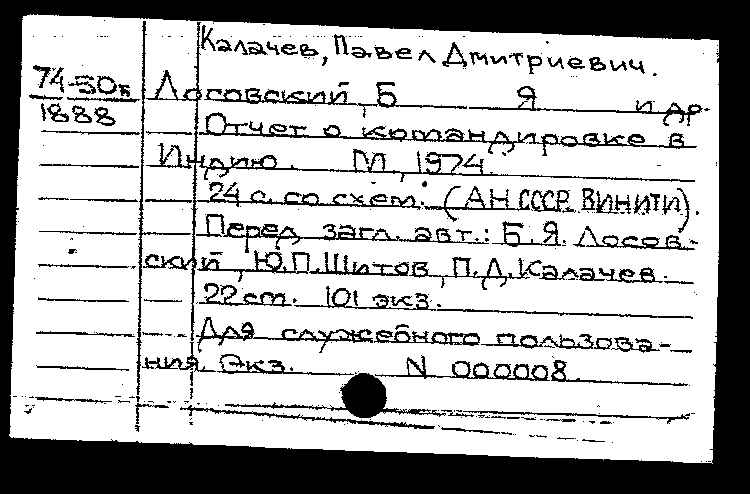 Калачев, Павел Дмитриевич.
74-50к
1888
Лосовский, Б Я и др.
Отчет о командировке в
Индию. М, 1974.
24 с. со схем. (АН СССР. ВИНИТИ).
Перед загл. авт.: Б.Я. Лосов-
ский, Ю.П. Шитов, П.Д. Калачев.
22 см. 101 экз.
Для служебного пользова-
ния. Экз. N 000008.